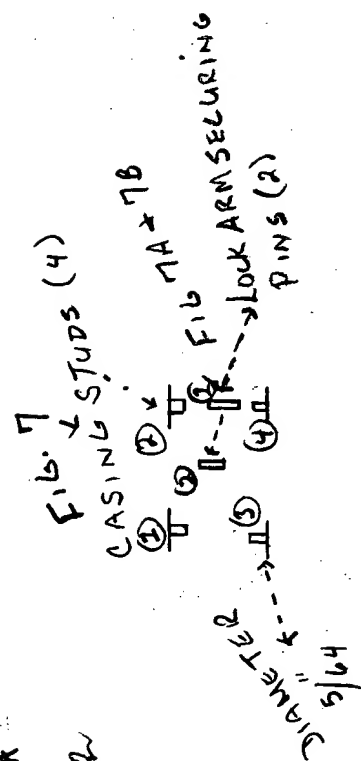 FIG. 7
CASING STUDS (4)
FIG 7A + 7B
LOCK ARM SECURING
PINS (2)
1
2
2
2
3
4
DIAMETER
5/64"